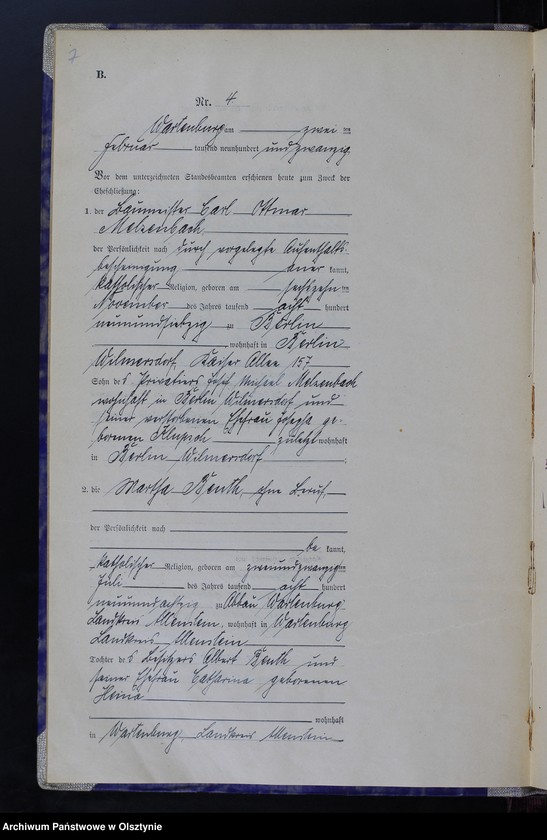 7
B.
Nr. 4
Wartenburg am zwei ten
Februar tausend neunhundert und zwanzig
Vor dem unterzeichneten Standesbeamten erschienen heute zum Zweck der
Eheschließung:
1. der Baumeister Carl Ottmar
Melzenbach
der Persönlichkeit nach durch vorgelegte Aufenthalts-
bescheinigung aner kannt,
katholischer Religion, geboren am sechszehn ten
November des Jahres tausend acht hundert
neunundsiebzig zu Berlin
, wohnhaft in Berlin
Wilmersdorf, Kaiser Allee 157
Sohn des Privatiers Josef Melzenbach
wohnhaft in Berlin Wilmersdorf und
seiner verstorbenen Ehefrau Josepha ge-
borenen zuletzt wohnhaft
in Berlin Wilmersdorf ;
2. die Martha Benth, ohne Beruf,
der Persönlichkeit nach
be kannt,
katholischer Religion, geboren am zweiundzwanzig ten
Juli des Jahres tausend acht hundert
neunundachtzig zu Abbau Wartenburg
Landkreis Allenstein, wohnhaft in Wartenburg
Landkreis Allenstein
Tochter des Besitzers Albert Benth und
seiner Ehefrau Catharina geborenen
wohnhaft
in Wartenburg, Landkreis Allenstein
Archiwum Państwowe w Olsztynie